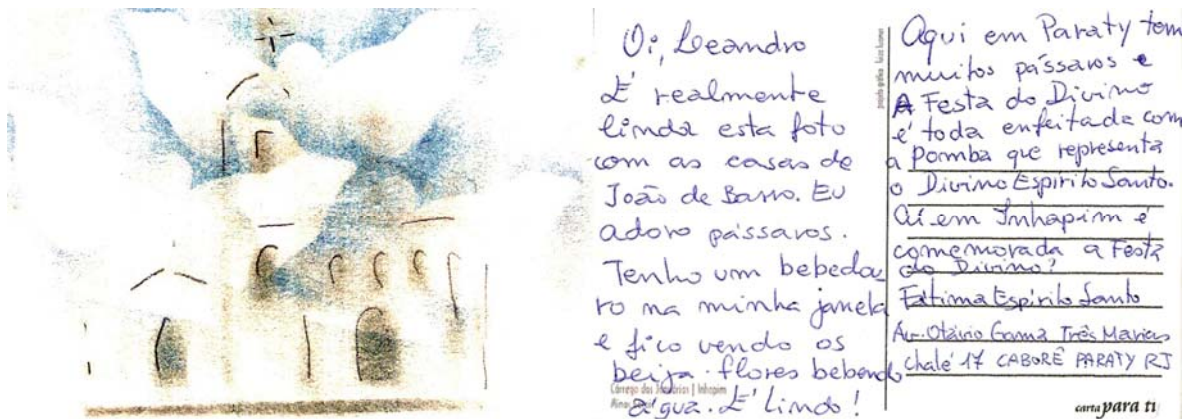 Oi, Leandro
É realmente
linda esta foto
com as casas de
João de Barro. Eu
adoro pássaros.
Tenho um bebedou
ro na minha janela
e fico vendo os
beija-flores bebendo
água. É lindo!
Córrego dos | Inhapim
Minas
projeto gráfico
Aqui em Paraty tem
muitos pássaros e
A Festa do Divino
é toda enfeitada com
a Pomba que representa
o Divino Espírito Santo.
Aí em Inhapim é
comemorada a Festa
do Divino?
Fátima Espírito Santo
Av. Otávio Gama Três Marias
Chalé 17 CABORÊ PARATY RJ
carta para ti